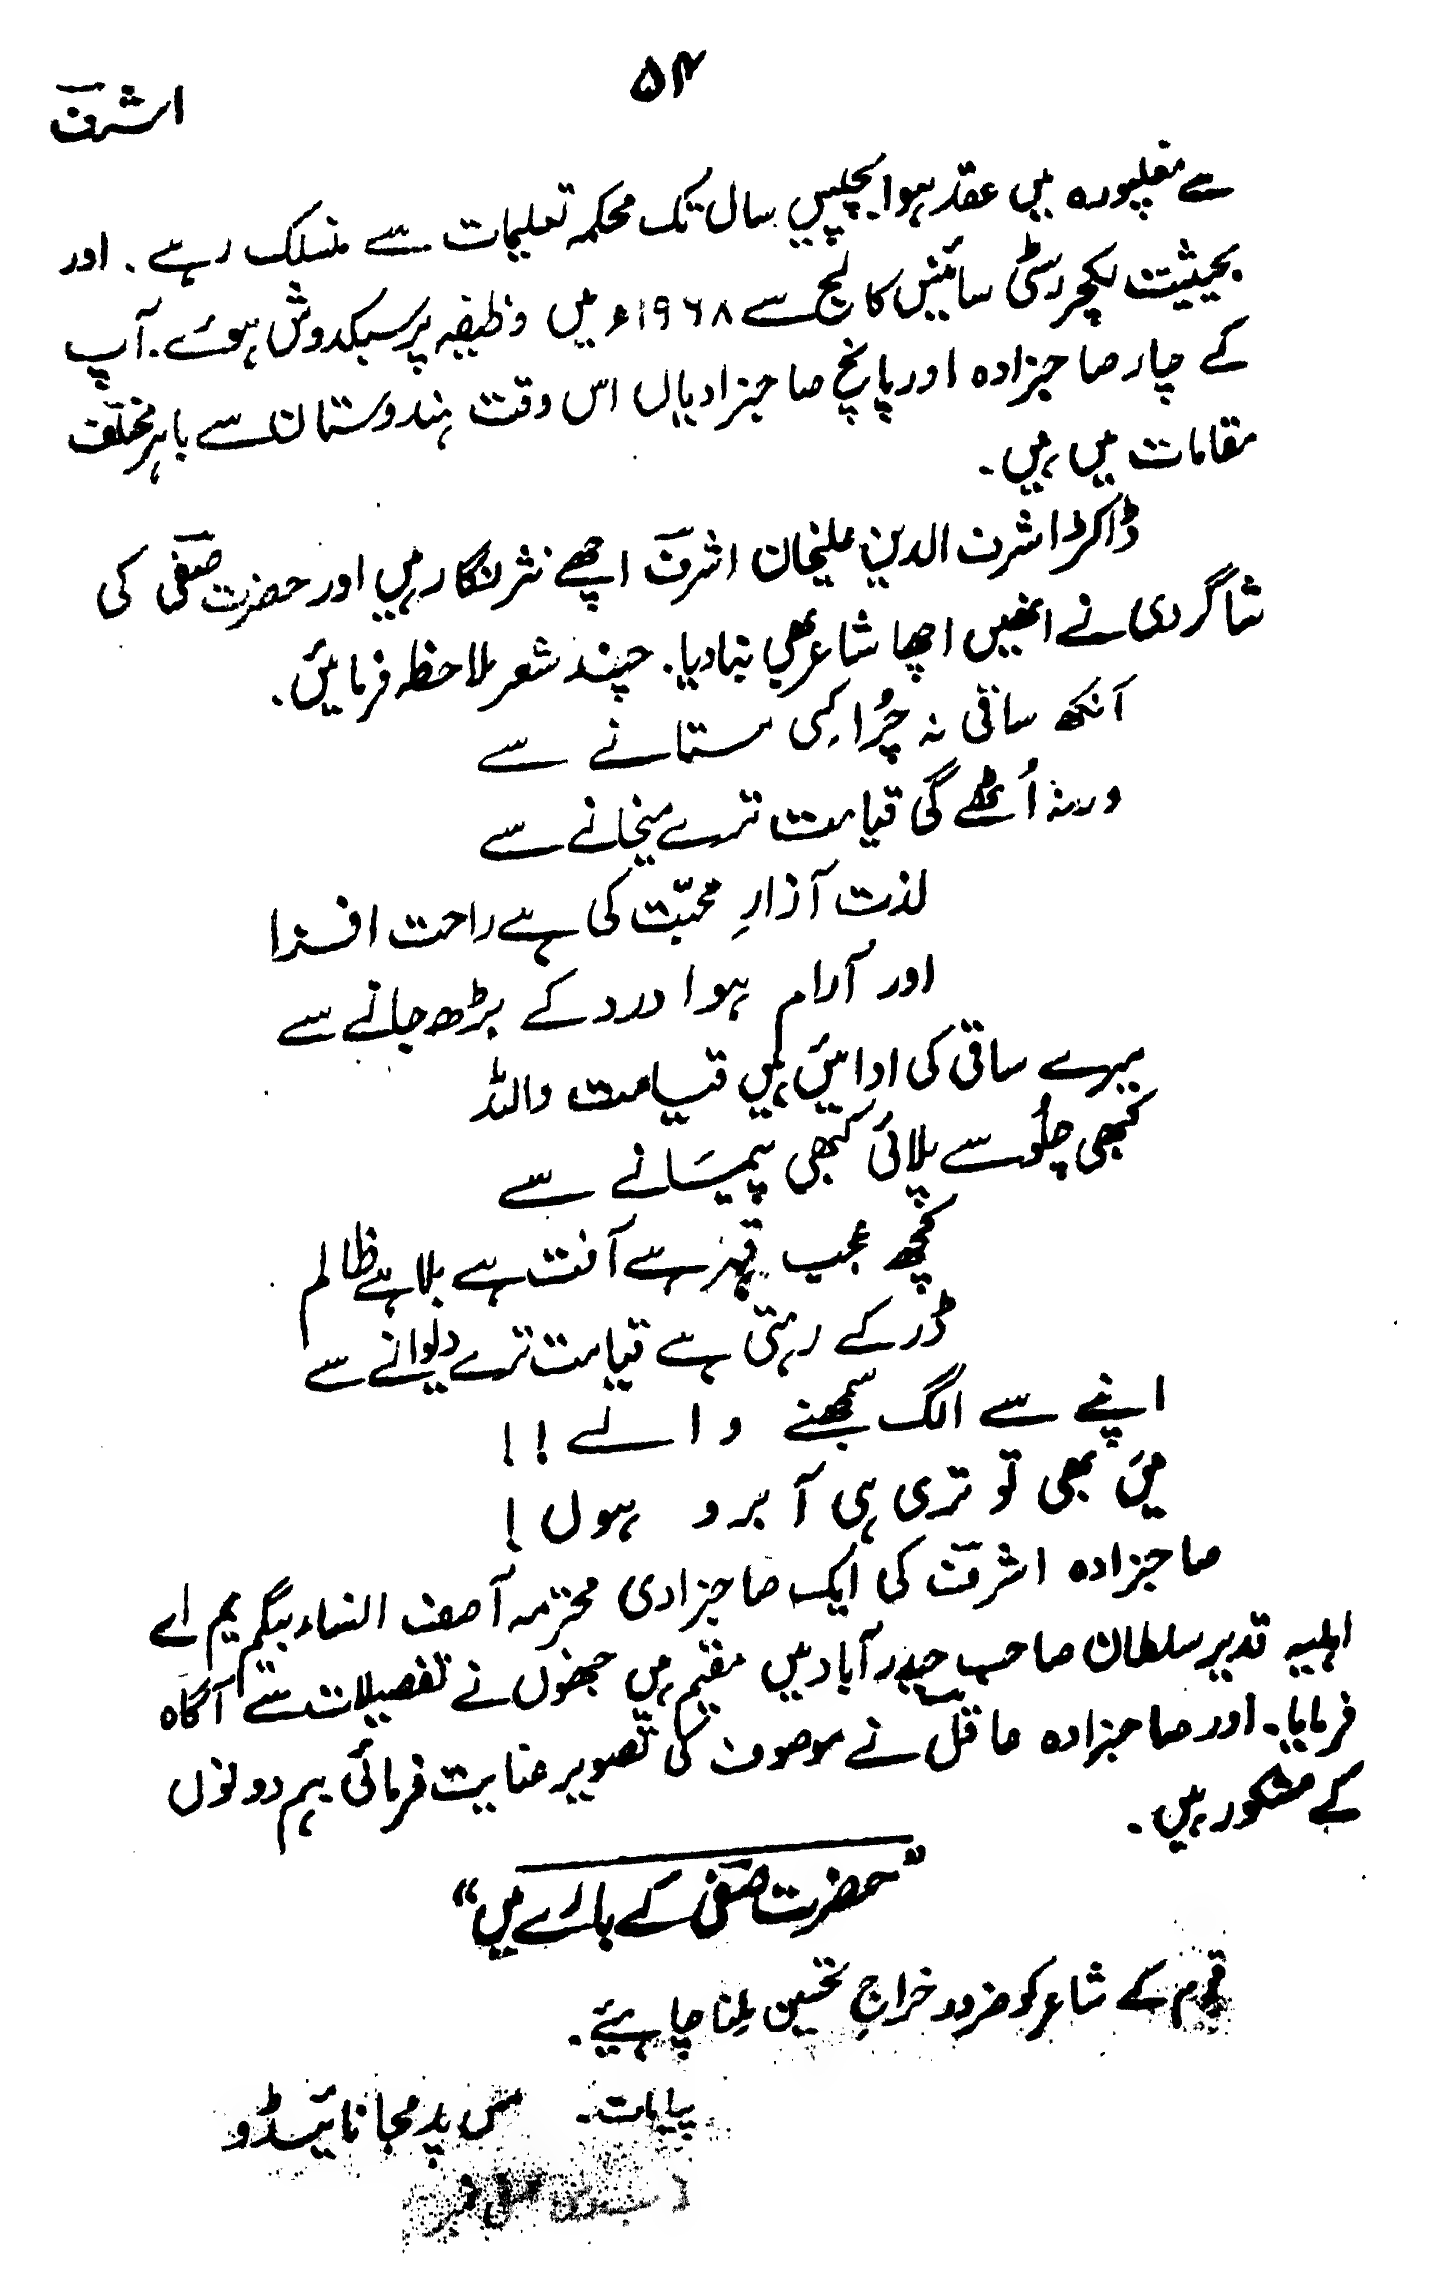 ۵۴
اشرفؔ
سے مغلپورہ میں عقد ہوا۔ پچیس سال تک محکمہ تعلیمات سے منسلک رہے۔ اور
بحیثیت لکچرر سٹی سائنس کالج سے ۱۹۶۸ء میں وظیفہ پر سبکدوش ہوئے۔ آپ
کے چار صاحبزادہ اور پانچ صاحبزادیاں اس وقت ہندوستان سے باہر مختلف
مقامات میں ہیں۔
ڈاکڑ اشرف الدین علیخان اشرفؔ اچھے نثر نگار ہیں اور حضرت صفیؔ کی
شاگردی نے انھیں اچھا شاعر بھی بنا دیا۔ چند شعر ملاحظہ فرمائیں۔
آنکھ ساقی نہ چُرا کِسی مستانے سے
ورنہ اُٹھے گی قیامت ترے میخانے سے
لذت آزارِ محبّت کی ہے راحت افزا
اور آرام ہوا درد کے بڑھ جانے سے
میرے ساقی کی ادائیں ہیں قیامت واللہ
کبھی چلُو سے پلائی کبھی پیمَانے سے
کچھ عجب قہر ہے آفت ہے بلا ہے ظالم
ڈر کے رہتی ہے قیامت ترے دیوانے سے
اپنے سے الگ سمجھنے والے !!
میں بھی تو تری ہی آبرو ہوں !
صاحبزادہ اشرفؔ کی ایک صاحبزادی محترمہ آصف النساء بیگم یم اے
اہلیہ قدیر سلطان صاحب حیدرآباد میں مقیم ہیں جنھوں نے تفصیلات سے آگاہ
فرمایا۔ اور صاحبزادہ عاقلؔ نے موصوف کی تصویر عنایت فرمائی ہم دونوں
کے مشکور ہیں۔
"حضرت صفیؔ کے بارے میں"
قوم کے شاعر کو ضرور خراجِ تحسین مِلنا چاہیئے۔
پیامات۔ مس پدمجا نائیڈو